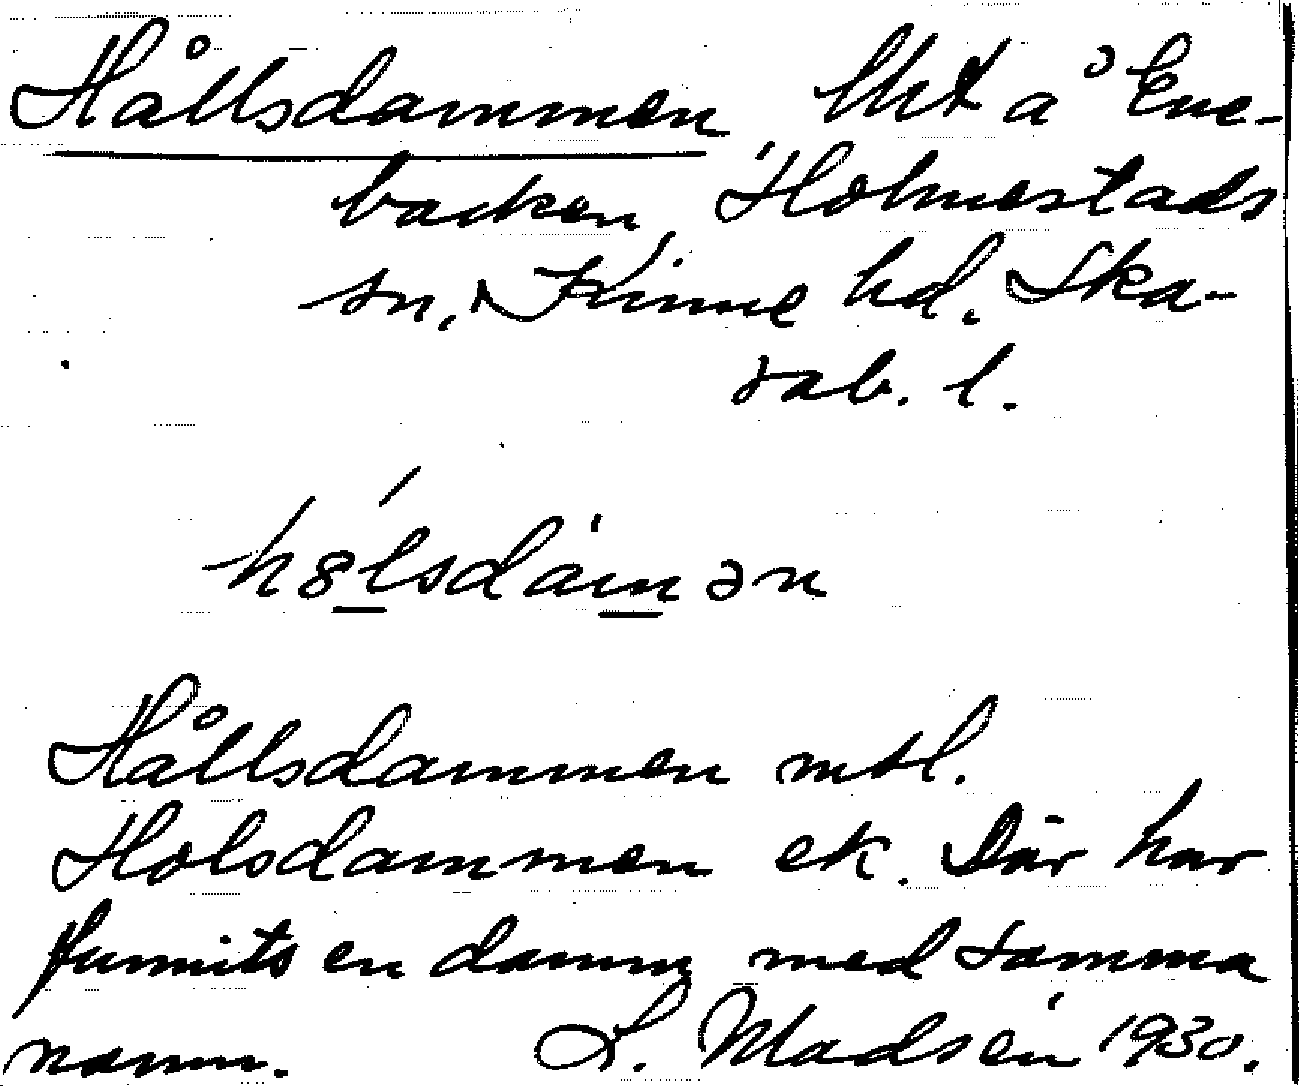 Hållsdammen, lht å Ene-
backen, Holmestads
sn, Kinne hd. Ska-
rab. l.
hålsdámən
Hållsdammen mtl.
Holsdammen ek. Där har
funnits en damm med samma
namn. L. Madsén 1930.